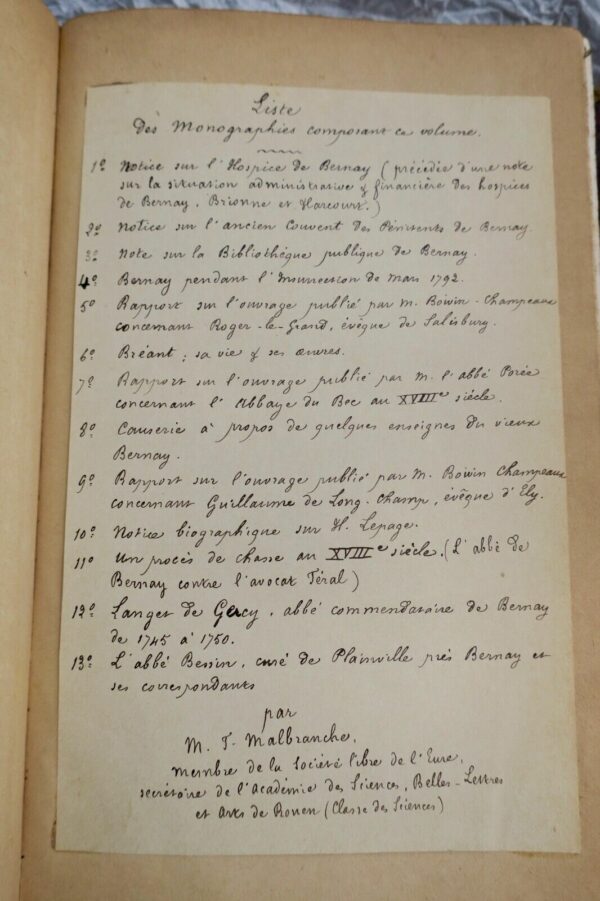 Liste
Des Monographies composant ce volume.
1º Notice sur l'Hospice de Bernay (précédée d'une note
sur la situation administrative & financière des hospices
de Bernay, Brionne et Harcourt.)
2º Notice sur l'ancien Couvent des Pénitents de Bernay
3º Note sur la Bibliothèque publique de Bernay.
4º Bernay pendant l'Insurrection de Mars 1792.
5º Rapport sur l'ouvrage publié par M. Boivin-Champeaux
concernant Roger-le-Grand, évêque de Salisbury.
6º Bréant ; sa vie & ses œuvres.
7º Rapport sur l'ouvrage publié par M. l'abbé Porée
concernant l'Abbaye du Bec au XVIIIe siècle.
8º Causerie à propos de quelques enseignes du vieux
Bernay.
9º Rapport sur l'ouvrage publié par M. Boivin Champeaux
concernant Guillaume de Long-Champ, évêque d'Ely.
10º Notice biographique sur H. Lepage.
11º Un procès de chasse au XVIIIe siècle. (L'abbé de
Bernay contre l'avocat Féral)
12º Languet de Gercy, abbé commendataire de Bernay
de 1745 à 1750.
13º L'abbé Bessin, curé de Plainville près Bernay et
ses correspondants
par
M. T. Malbranche,
membre de la Société libre de l'Eure,
secrétaire de l'Académie des Sciences, Belles-Lettres
et Arts de Rouen (Classe des Sciences)